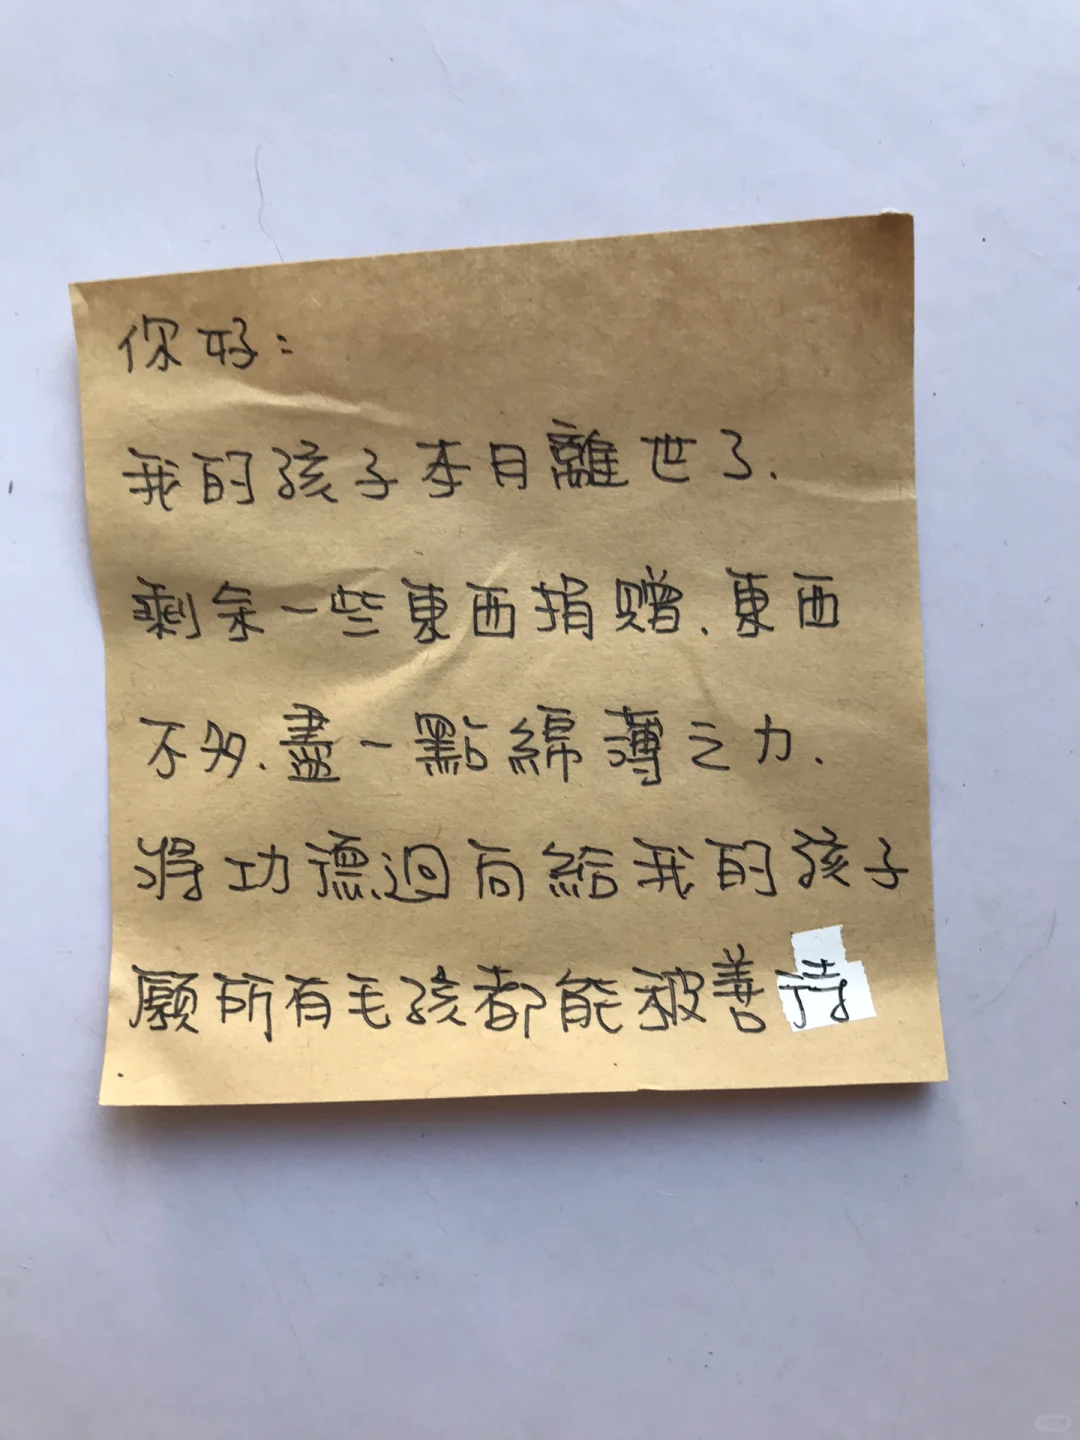 你好：
我的孩子本月離世了.
剩余一些東西捐赠.東西
不多.盡一點綿薄之力.
將功德迴向給我的孩子
願所有毛孩都能被善待